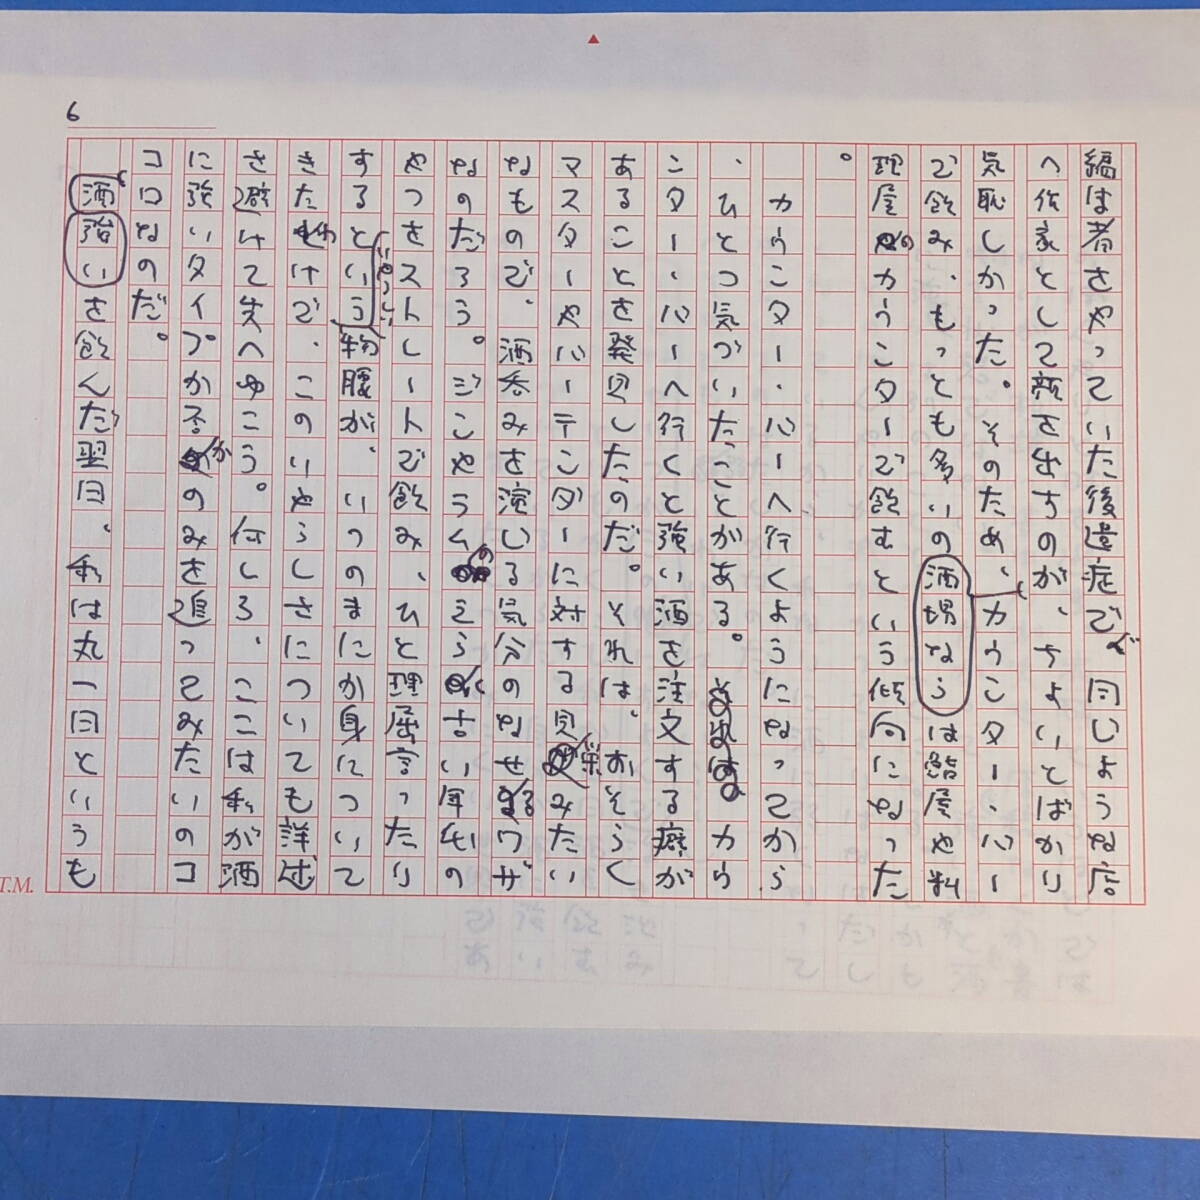 6
編集者をやっていた後遺症で、同じような店
へ作家として顔を出すのが、ちょいとばかり
気恥しかった。そのため、カウンター・バー
で飲み、もっとも多いの酒場ならは鮨屋や料
理屋のカウンターで飲むという傾向になった
。
カウンター・バーへ行くようになってから
、ひとつ気づいたことがある。カウ
ンター・バーへ行くと強い酒を注文する癖が
あることを発見したのだ。それは、おそらく
マスターやバーテンダーに対する見栄みたい
なもので、酒呑みを演じる気分のなせるワザ
なのだろう。ジンやラムのえらく古い年代の
やつをストレートで飲み、ひと理屈言ったり
するといういやらしい物腰が、いつのまにか身について
きたわけで、このいやらしさについても詳述
を避けて先へゆこう。何しろ、ここは私が酒
に強いタイプか否かのみを追ってみたいのコ
コロなのだ。
酒強いを飲んだ翌日、私は丸一日というも
T.M.